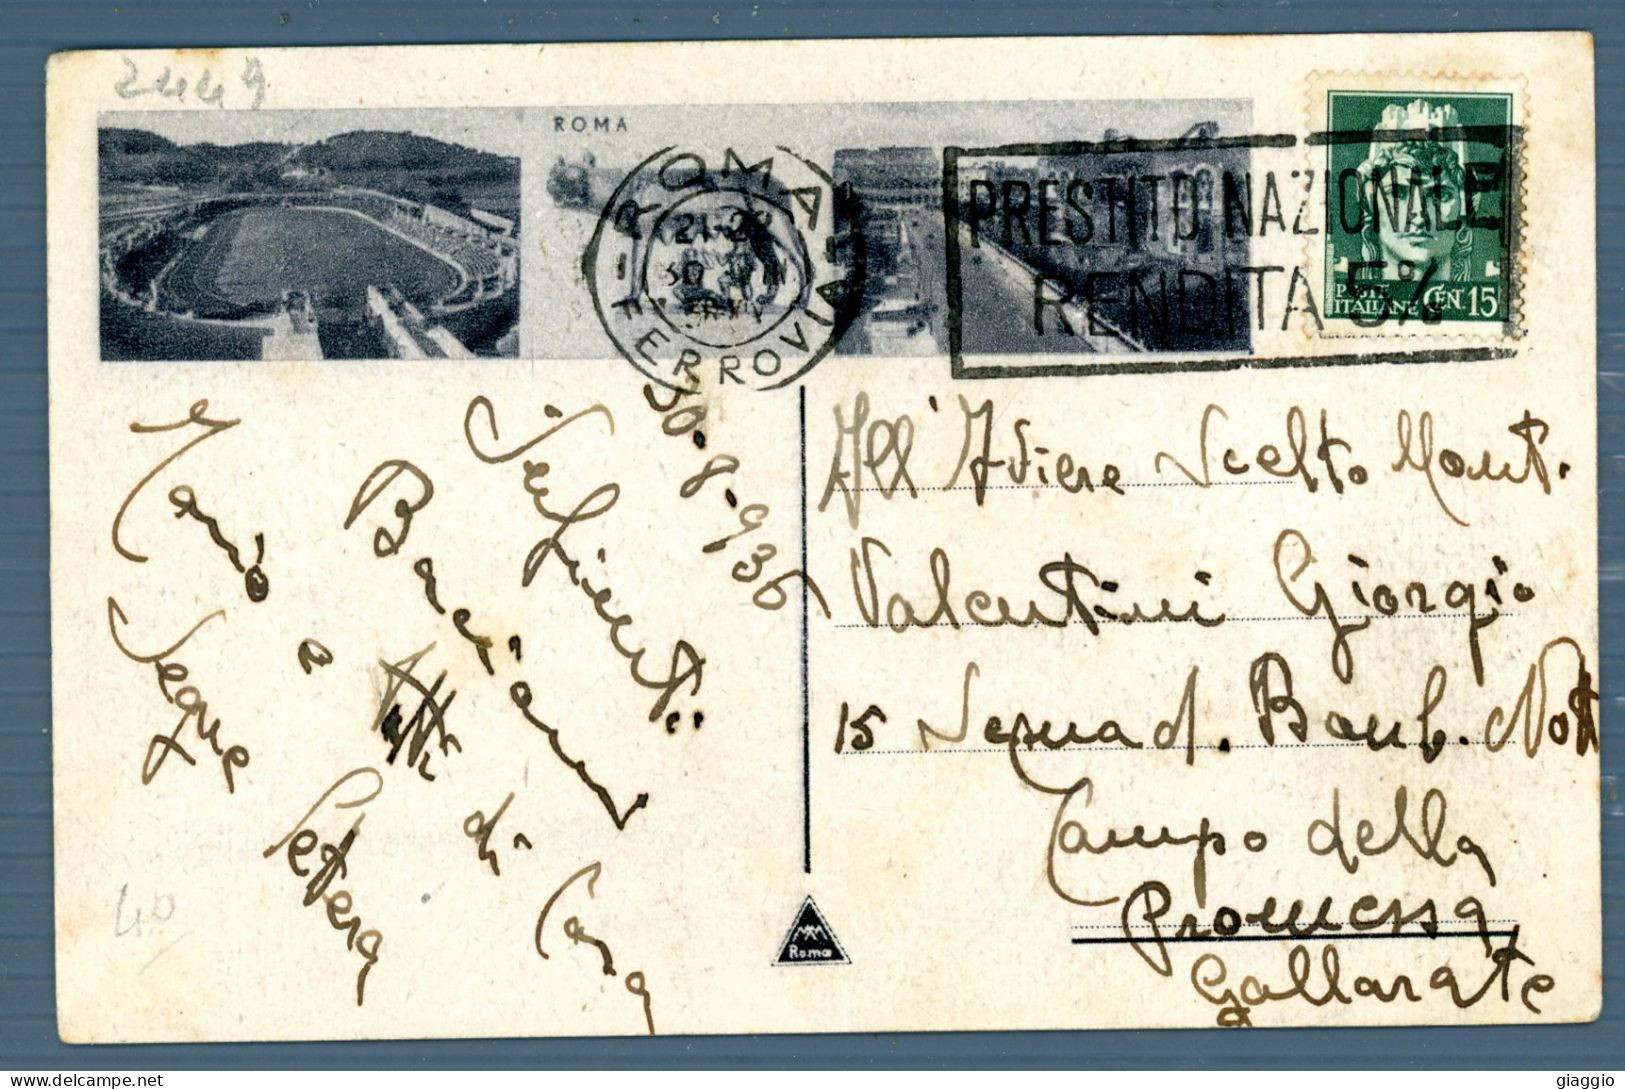 2449
ROMA
ROMA
FERROVIA
21-22
30 VIII
PRESTITO NAZIONALE
RENDITA 5%
POSTE
ITALIANE CEN. 15
30-8-936
All'Aviere Scelto Mont.
Valentini Giorgio
15 Sqna d. Bomb. Nott
Campo della
Promessa
Gallarate
Infiniti
Bacioni
Mario
a tutti di Casa
Segue Lettera
40
Roma
giaggio
delcampe.net